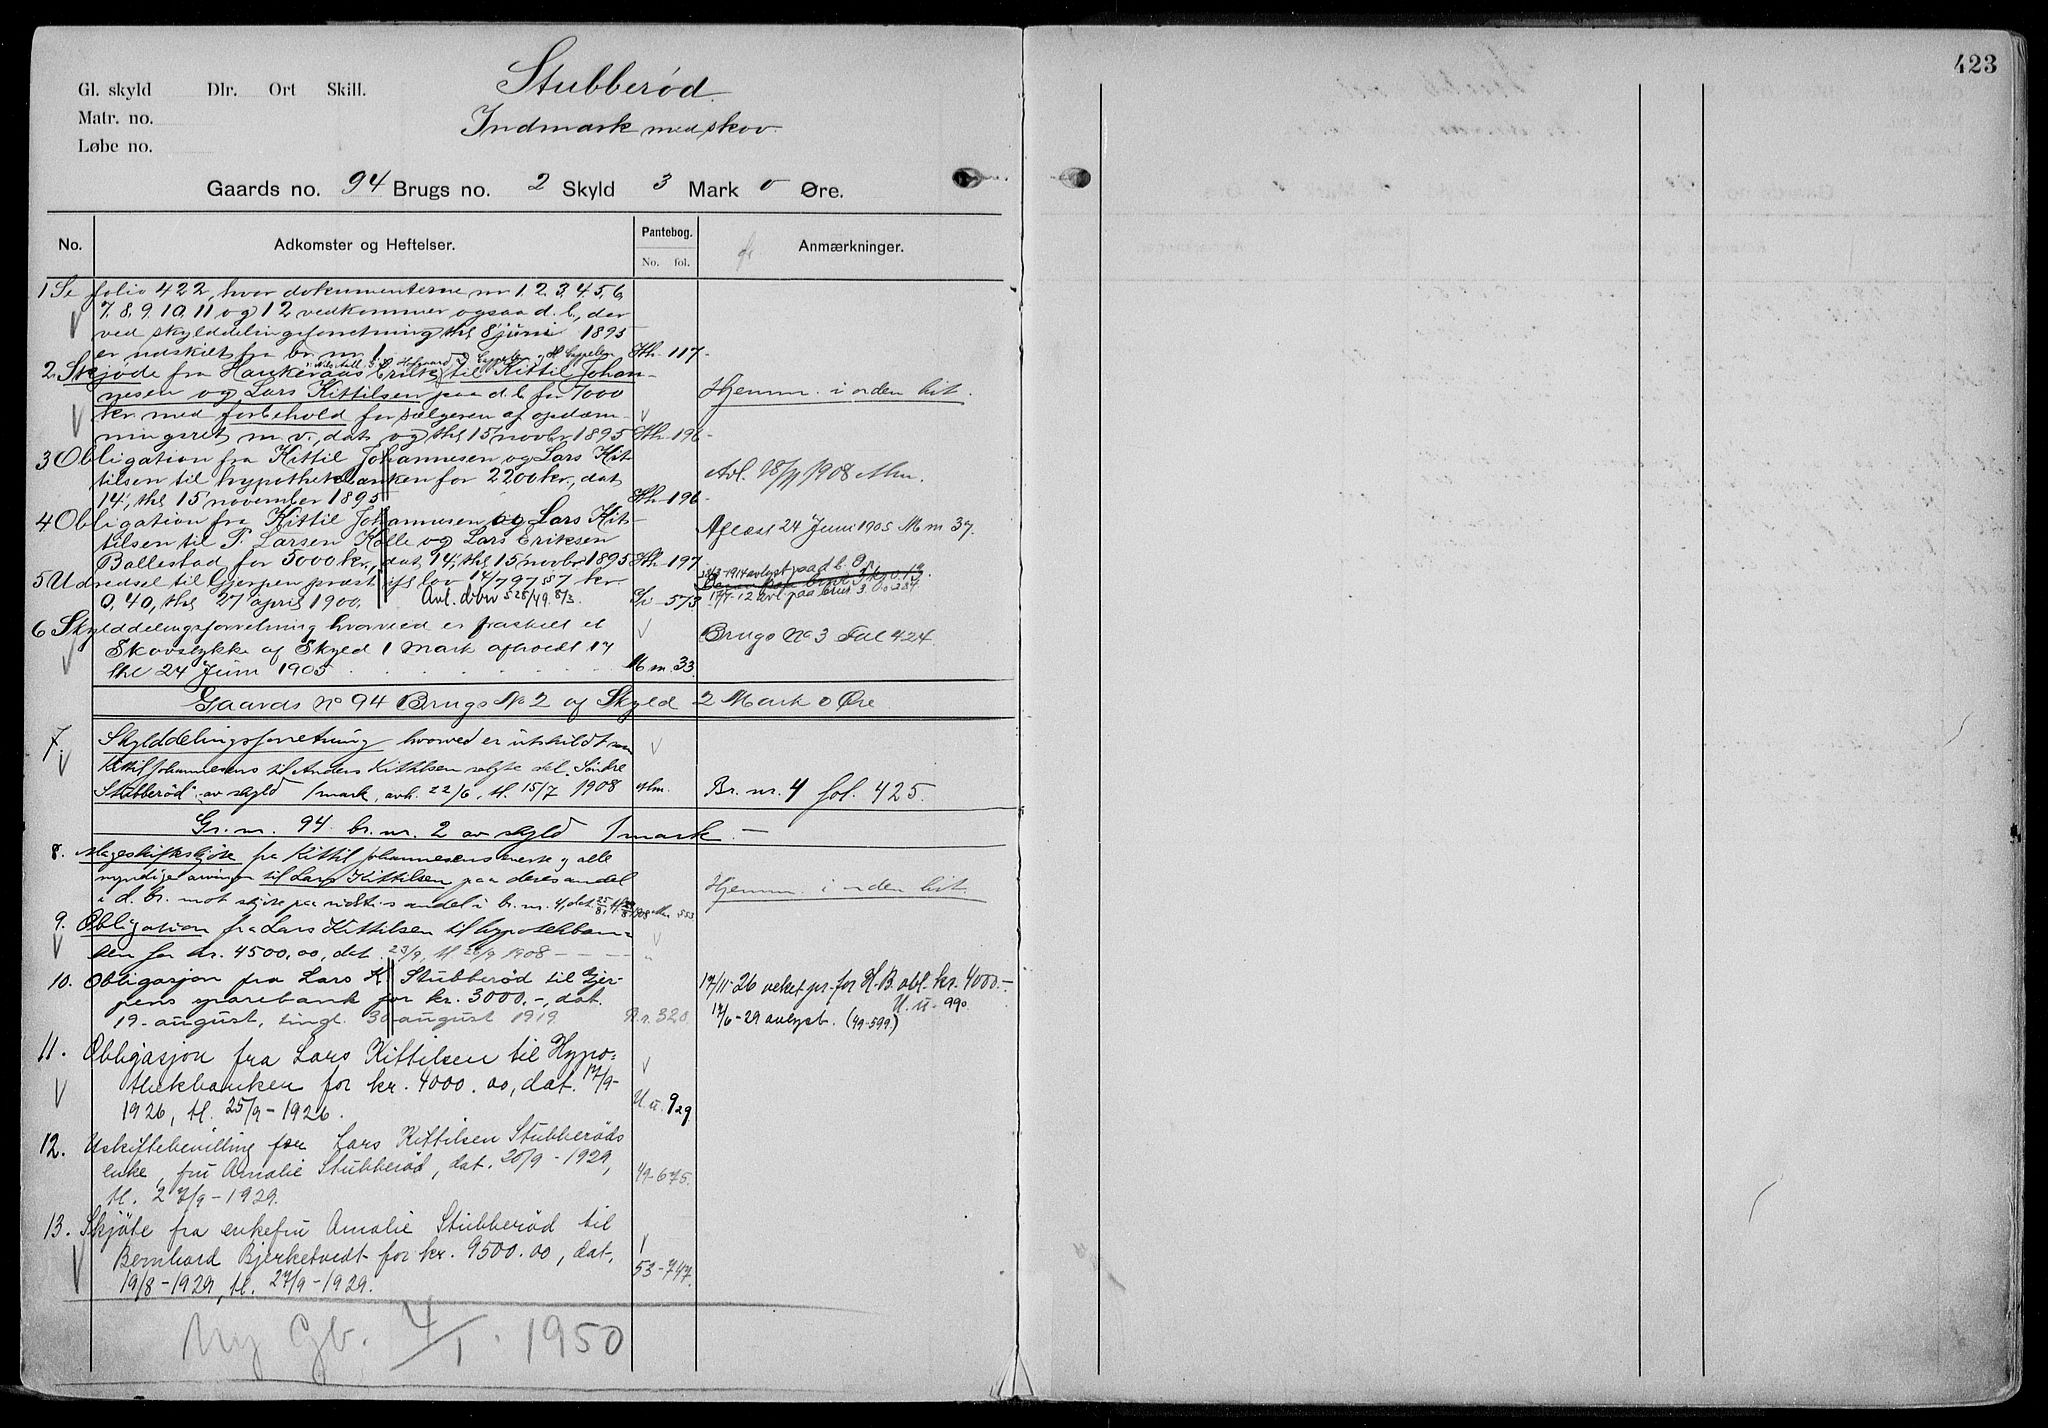 423
Stubberød.
Indmark med skov.
Gl. skyld Dlr. Ort Skill.
Matr. no.
Løbe no.
Gaards no. 94 Brugs no. 2 Skyld 3 Mark 0 Øre.
No. Adkomster og Heftelser. Pantebog. No. fol. Anmærkninger.
1 Se folio 422, hvor dokumenterne nr 1, 2, 3, 4, 5, 6,
7, 8, 9, 10, 11 og 12 vedkommer ogsaa d. b., der
ved skylddelingsforretning thl 8 juni 1895
er udskilt fra br. nr. 1. Hh-117-
2. Skjøde fra til Kittil Johan-
nesen og Lars Kittilsen paa d. b. for 7000 Hjemm. i orden hit.
kr. med forbehold for sælgeren af opdæm-
ningsret m. v., dat. og thl 15 novbr 1895 Hh-196-
3 Obligation fra Kittil Johannesen og Lars Kit-
tilsen til hypothekbanken for 2200 kr., dat. Avl. 1908 Mm.
14, thl 15 november 1895 Hh-196-
4 Obligation fra Kittil Johannesen og Lars Kit-
tilsen til P. Larsen Kolle og Lars Eriksen Aflæst 24 Juni 1905 Mm 37.
Ballestad for 5000 kr., dat. 14, thl 15 novbr. 1895 Hh-197
5 Udredsel til Gjerpen præst ifl. lov 14/7 97 § 7 kr.
0,40, thl 27 april 1900. Avl. 573
6 Skylddelingsforretning hvorved er fraskilt et
Skovstykke af Skyld 1 Mark afholdt 17 Brugs No 3 Fol 424.
thl 24 Juni 1905 Mm. 33.
Gaards No 94 Brugs No 2 af Skyld 2 Mark 0 Øre
7. Skylddelingsforretning hvorved er utskildt
Kittil Johannesens til Anders Kittilsen solgte del "Søndre
Stubberød" av skyld 1 mark, avh. 22/6, tl. 15/7 1908 Mm. Br. nr. 4 fol. 425.
Gr. nr. 94 br. nr. 2 av skyld 1 mark. -
8. Mageskifteskjøte fra Kittil Johannesens enke og alle
myndige arvinger til Lars Kittilsen paa deres andel Hjemm. i orden hit.
i d. br. mot skjøte paa andel i br. nr. 4, dat. 25/8, 1908 Mm 553
9. Obligation fra Lars Kittilsen til hypotekban-
ken for kr. 4500,00, dat. 23/9, tl 1908 - - - "
10. Obligasjon fra Lars K Stubberød til Gjer-
pens sparebank for kr. 3000.-, dat.
19-august, tingl. 30 august 1919. 320.
17/11-26 veket pr. for H.B. obl. kr. 4000.-
U. u. 990.
17/6-29 avlyst. (49-599.)
11. Obligasjon fra Lars Kittilsen til Hypo-
thekbanken for kr. 4000.00, dat. 17/9-
1926, tl. 25/9-1926. U u. 929
12. Uskiftebevilling for Lars Kittilsen Stubberøds
enke, fru Amalie Stubberød, dat. 20/9-1929,
tl. 27/9-1929. 49-675.
13. Skjøte fra enkefru Amalie Stubberød til
Bernhard Bjerketvedt for kr. 9500.00, dat.
19/8-1929, tl. 27/9-1929. 53-747.
Ny Gb. 4/1. 1950